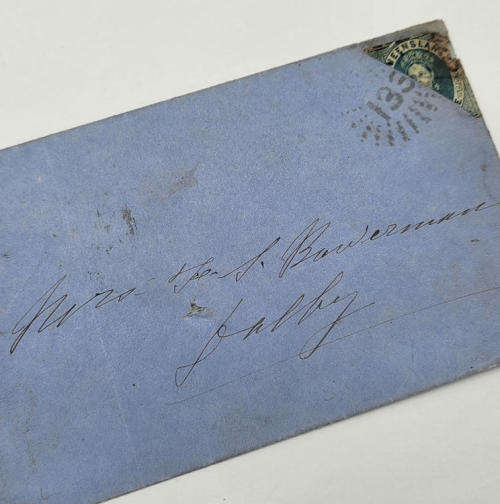 QUEENSLAND
Mrs F. S. Bowerman
Dalby